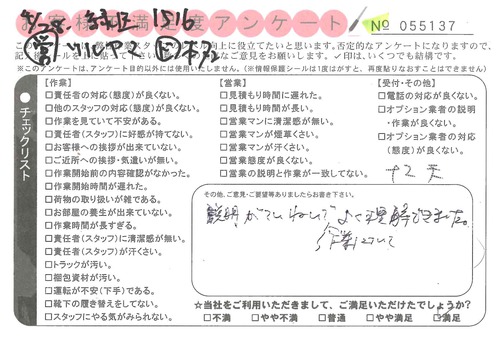 お客様満足度アンケート
№ 055137
9/28 1516
ツルヤス
このアンケートは
業スタ
向上に役立てたいと思います。否定的なアンケートになりますので、
記入後シールを
なご意見をお願いします。✓印は、いくつでも結構です。
※このアンケートは、アンケート目的以外には使用いたしません。(※情報保護シールは1度はがすと、再度貼りなおすことはできません)
チェックリスト
【作業】
□責任者の対応(態度)が良くない。
□他のスタッフの対応(態度)が良くない。
□作業を見ていて不安がある。
□責任者(スタッフ)に好感が持てない。
□お客様への挨拶が出来ていない。
□ご近所への挨拶・気遣いが無い。
□作業開始前の内容確認がなかった。
□作業開始時間が遅れた。
□荷物の取り扱いが雑である。
□お部屋の養生が出来ていない。
□作業時間が長すぎる。
□責任者(スタッフ)に清潔感が無い。
□責任者(スタッフ)が汗くさい。
□トラックが汚い。
□梱包資材が汚い。
□運転が不安(下手)である。
□靴下の履き替えをしてない。
□スタッフにやる気がみられない。
【営業】
□見積もり時間に遅れた。
□見積もり時間が長い。
□営業マンに清潔感が無い。
□営業マンが煙草くさい。
□営業マンが汗くさい。
□営業態度が良くない。
□営業の説明と作業が一致してない。
【受付・その他】
□電話の対応が良くない。
□オプション業者の説明
・作業が良くない。
□オプション業者の対応
(態度)が良くない。
その他、ご意見・ご要望等ありましたらお書き下さい。
説明がていねいでよく理解できました。
作業について
☆当社をご利用いただきまして、ご満足いただけたでしょうか?
□不満 □やや不満 □普通 □やや満足 □満足